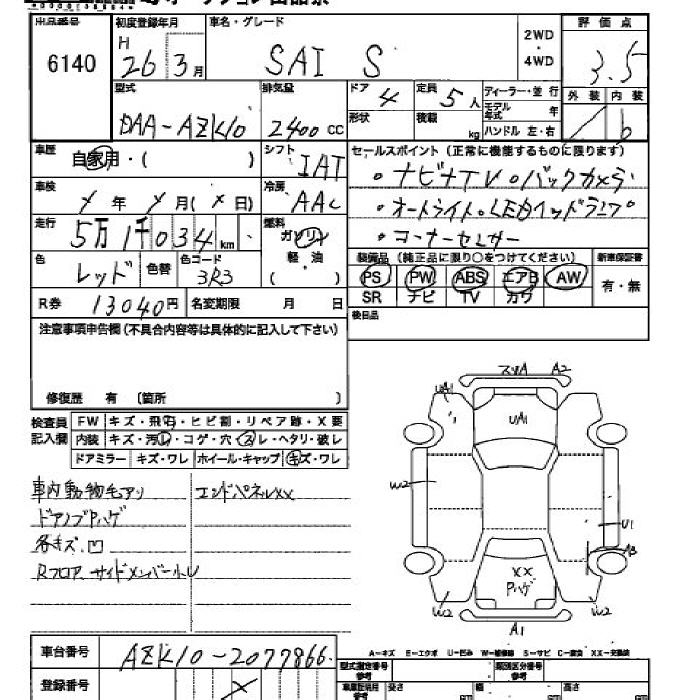 出品番号 初度登録年月 車名・グレード 2WD ・ 4WD 評価点
6140 H 26 3月 SAI S 3.5
型式 排気量 ドア 4 定員 5人 ディーラー・並行 外装 内装
DAA-AZK10 2400cc 形状 積載 kg モデル年式 年 b
ハンドル 左・右
車歴 自家用・( ) シフト IAT セールスポイント(正常に機能するものに限ります)
・ナビ+TV・バックカメラ
車検 メ年 メ月(メ日) 冷房 AAC
・オートライト・LEDヘッドランプ
走行 5万1千034km 燃料 ガソリン
・コーナーセンサー
軽・油
( )
色 レッド 色替 色コード 3R3
装備品(純正品に限り○をつけてください) 新車保証書
PS PW ABS エアB AW 有・無
SR ナビ TV カワ
R券 13040円 名変期限 月 日
後日品
注意事項申告欄(不具合内容等は具体的に記入して下さい)
修復歴 有 〔箇所 〕
検査員記入欄 FW キズ・飛石・ヒビ割・リペア跡・X要
内装 キズ・汚レ・コゲ・穴・スレ・ヘタリ・破レ
ドアミラー キズ・ワレ ホイール・キャップ キズ・ワレ
車内動物毛アリ エンドパネルXX
ドアノブPハゲ
各キズ.凹
Rフロア.サイドメンバー小U
スリA A2
UA1
1
UA1
W2
W2
U1
A3
XX
Pハゲ
W2
W2
A1
A-キズ E-エクボ U-凹み W-補修跡 S-サビ C-腐食 XX-交換跡
車台番号 AZK10-2077866
型式指定番号 参考 類別区分番号 参考
登録番号 メ 車庫証明用 参考 長さ cm 幅 cm 高さ cm